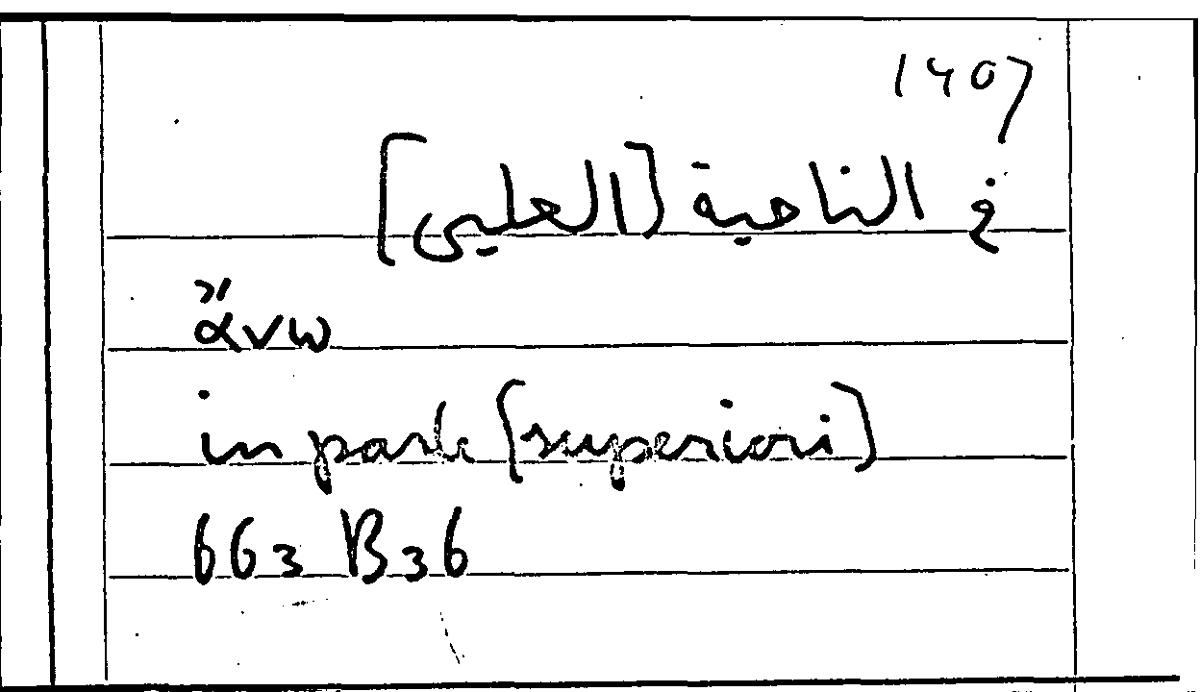 1407
في الناحية [العليى]
ἄνω
in parte [superiori]
663 B36